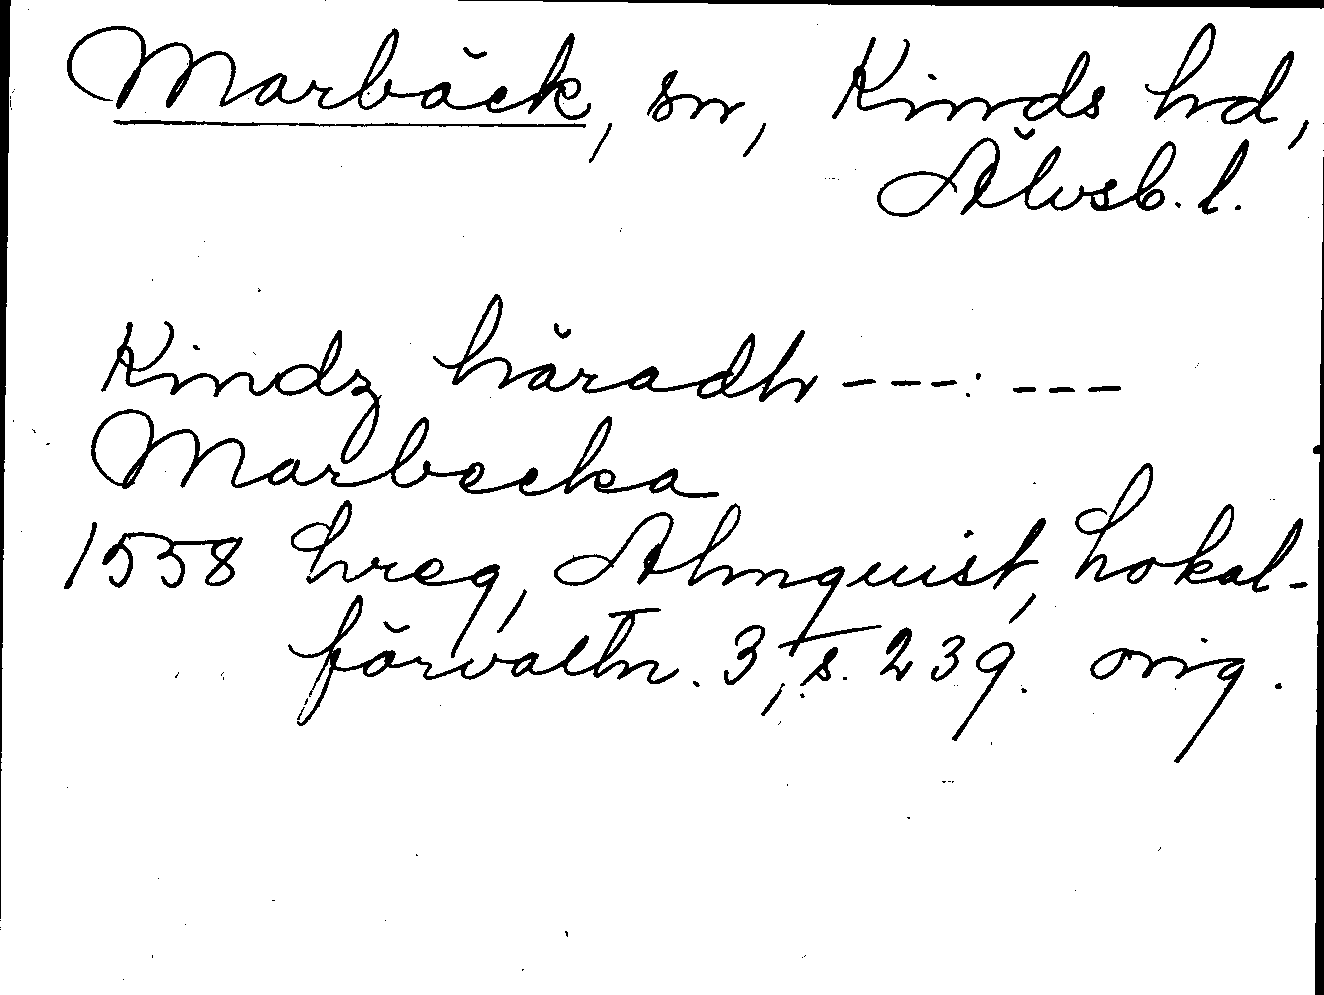 Marbäck, sn, Kinds hd,
Älvsb. l.
Kindz häradh ---: ---
Marbecka
1558 hreg, Almquist, Lokal-
förvaltn. 3, s. 239. orig.